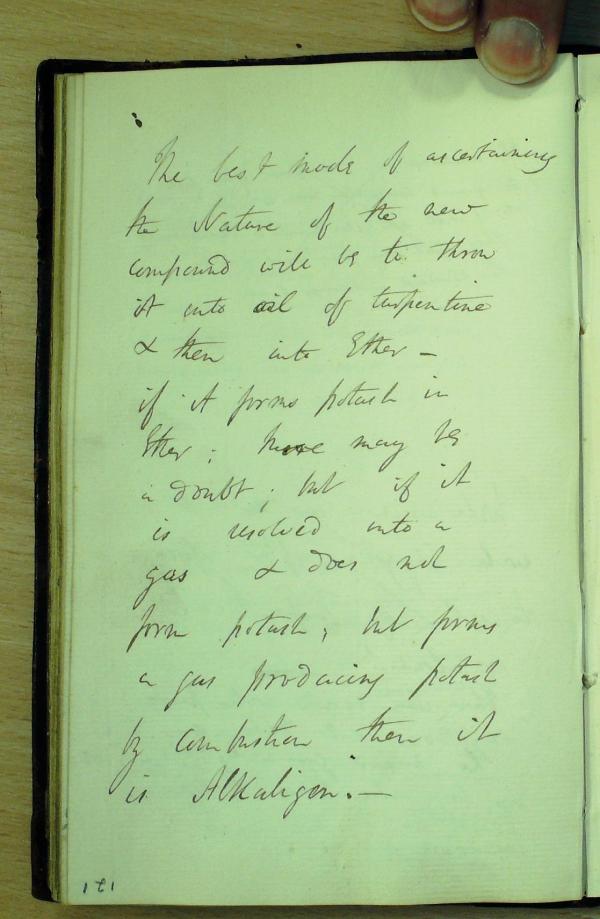 The best mode of ascertaining
the Nature of the new
compound will be to throw
it into oil of turpentine
& then into Ether –
if it forms potash in
Ether; there may be
a doubt; but if it
is resolved into a
gas & does not
form potash, but forms
a gas producing potash
by combustion then it
is Alkaligen. —